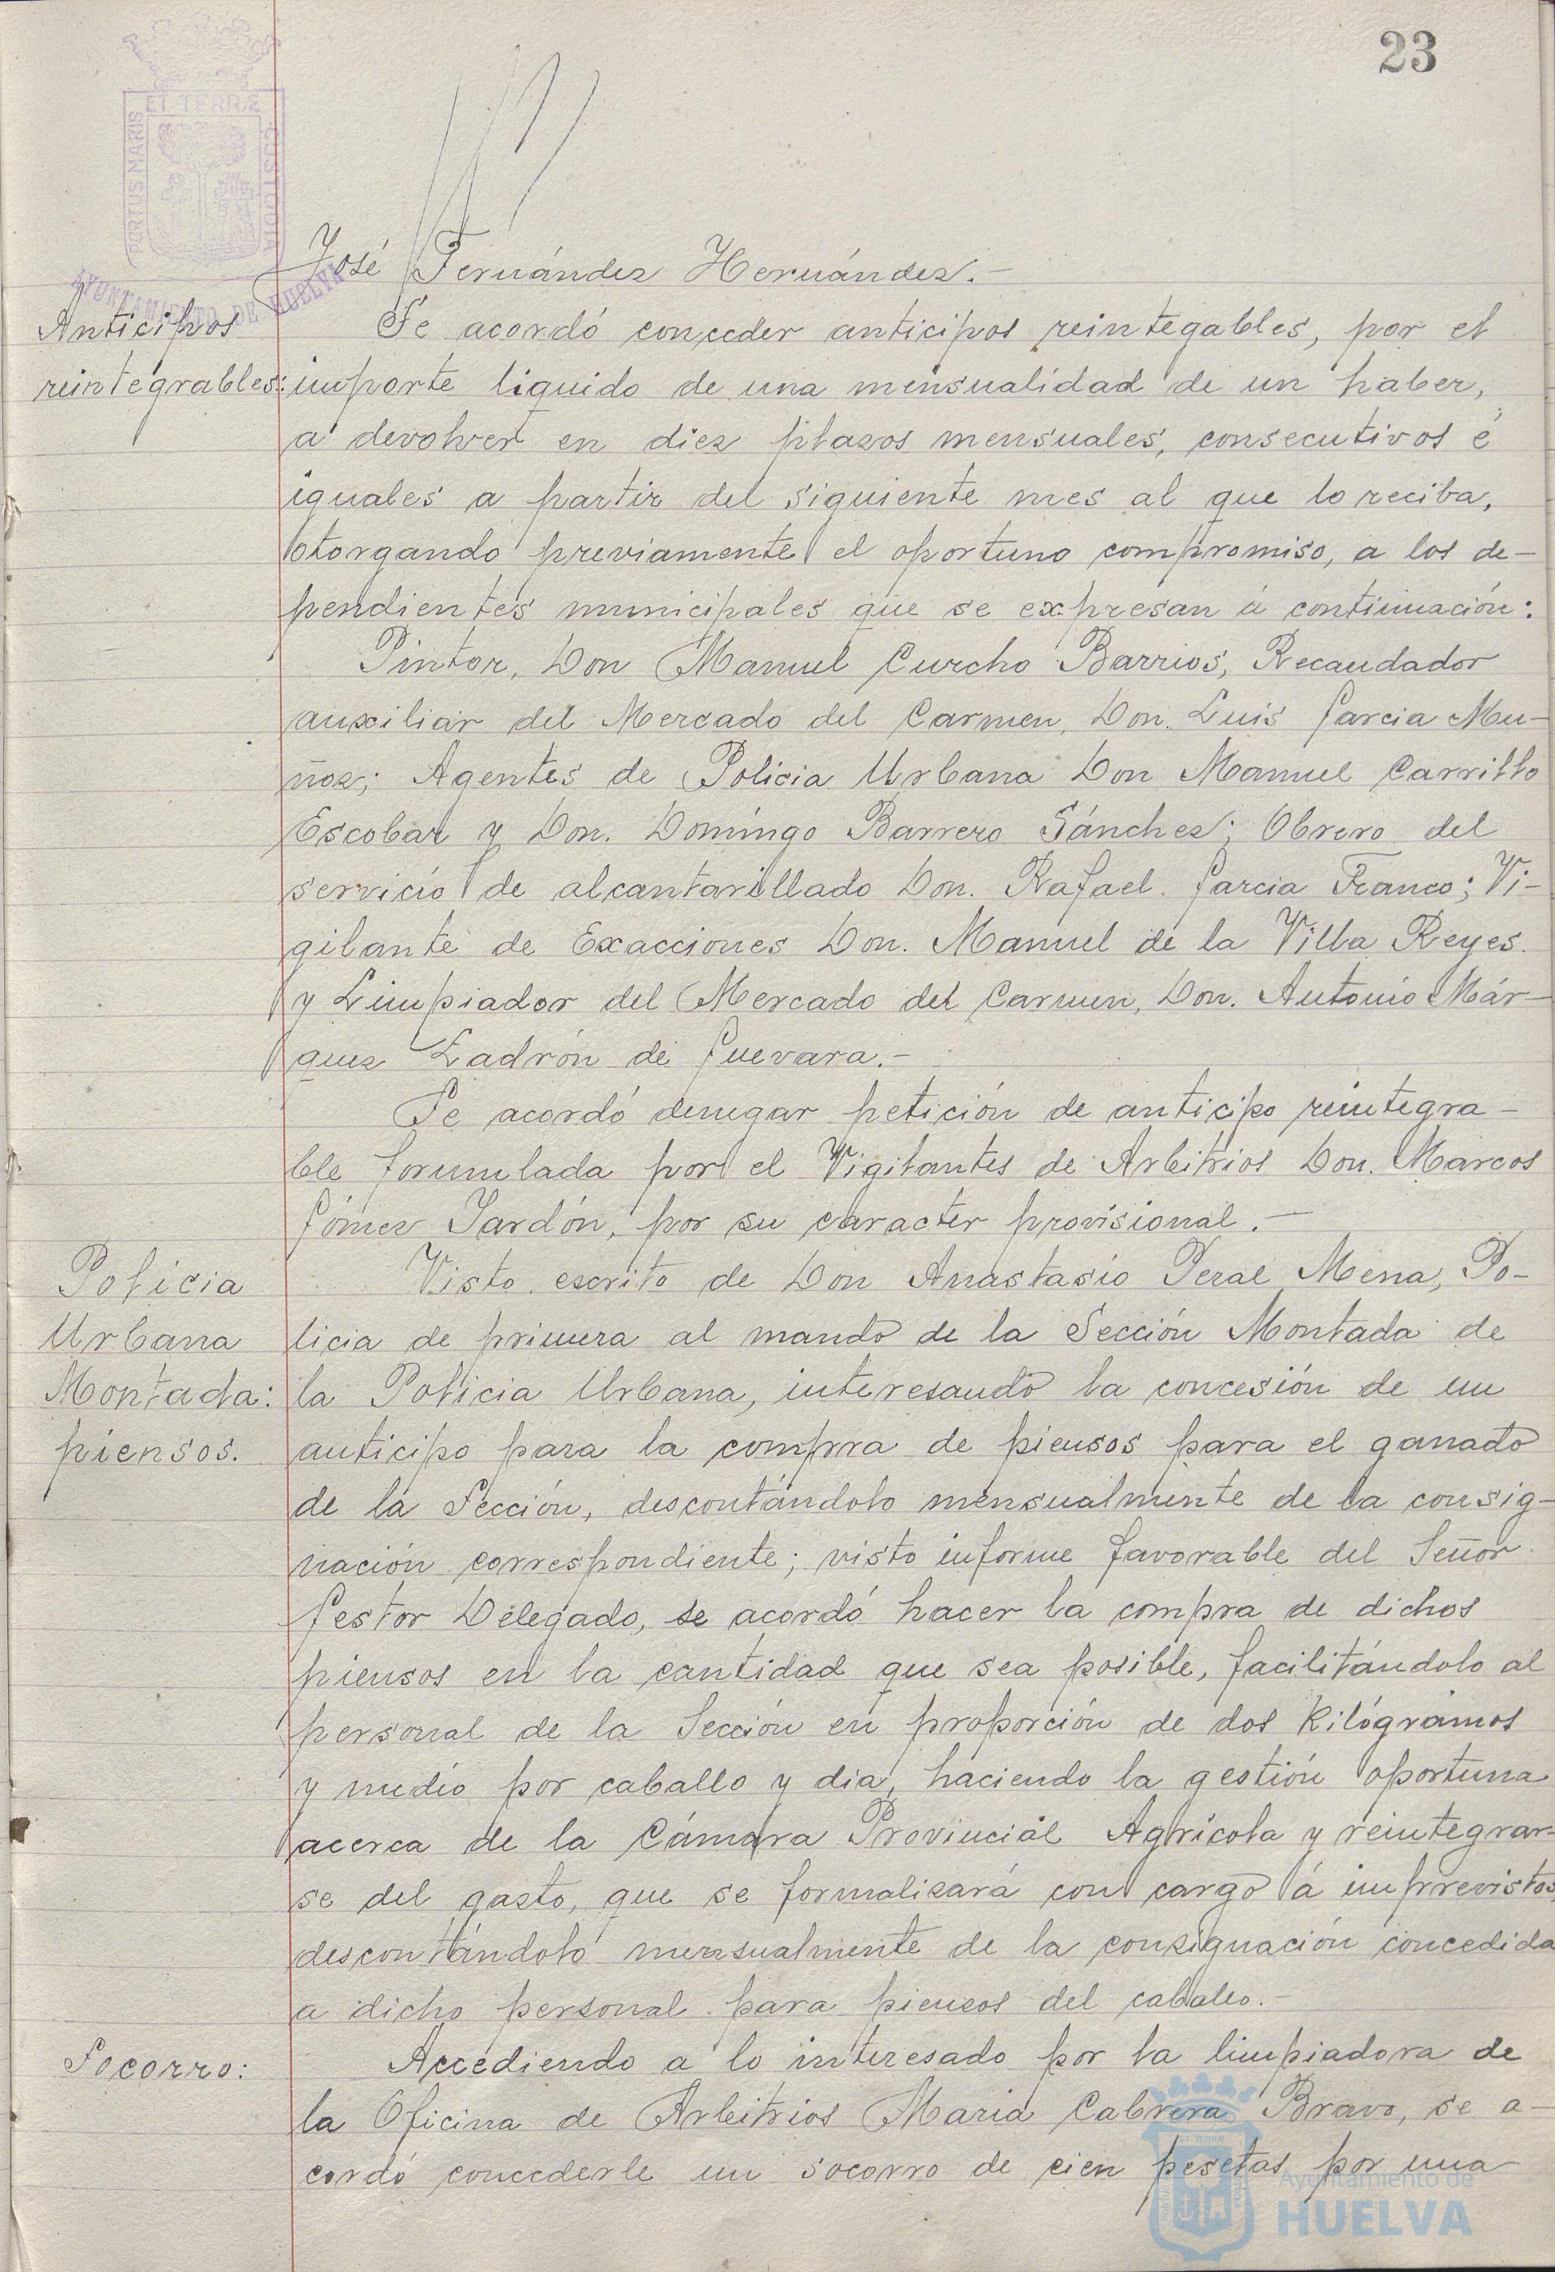 23
ET TERRÆ
PORTUS MARIS
CUSTODIA
AYUNTAMIENTO DE HUELVA
José Fernández Hernández.-
Anticipos
reintegrables:
Se acordó conceder anticipos reintegables, por el
importe liquido de una mensualidad de un haber,
a devolver en diez plazos mensuales, consecutivos é
iguales a partir del siguiente mes al que lo reciba,
otorgando previamente el oportuno compromiso, a los de-
pendientes municipales que se expresan á continuación:
Pintor, Don Manuel Curcho Barrios, Recaudador
auxiliar del Mercado del Carmen, Don. Luis Garcia Mu-
ñoz; Agentes de Policia Urbana Don Manuel Carrillo
Escobar y Don. Domingo Barrero Sánchez; Obrero del
servicio de alcantarillado Don. Rafael Garcia Franco; Vi-
gilante de Exacciones Don. Manuel de la Villa Reyes.
y Limpiador del Mercado del Carmen, Don. Antonio Már-
quez Ladrón de Guevara.-
Se acordó denegar petición de anticipo reintegra-
ble formulada por el Vigilantes de Arbitrios Don. Marcos
Gómez Jardón, por su caracter provisional.-
Policia
Urbana
Montada:
piensos.
Visto escrito de Don Anastasio Peral Mena, Po-
licia de primera al mando de la Sección Montada de
la Policia Urbana, interesando la concesión de un
anticipo para la compra de piensos para el ganado
de la Sección, descontándolo mensualmente de la consig-
nación correspondiente; visto informe favorable del Señor
Gestor Delegado, se acordó hacer la compra de dichos
piensos en la cantidad que sea posible, facilitándolo al
personal de la Sección en proporción de dos Kilógramos
y medio por caballo y dia, haciendo la gestión oportuna
acerca de la Cámara Provincial Agrícola y reintegrar-
se del gasto, que se formalizará con cargo á imprevistos,
descontándolo mensualmente de la consignación concedida
a dicho personal para piensos del caballo.-
Socorro:
Accediendo a lo interesado por la limpiadora de
la Oficina de Arbitrios Maria Cabrera Bravo, se a-
cordó concederle un socorro de cien pesetas por una
Ayuntamiento de
HUELVA